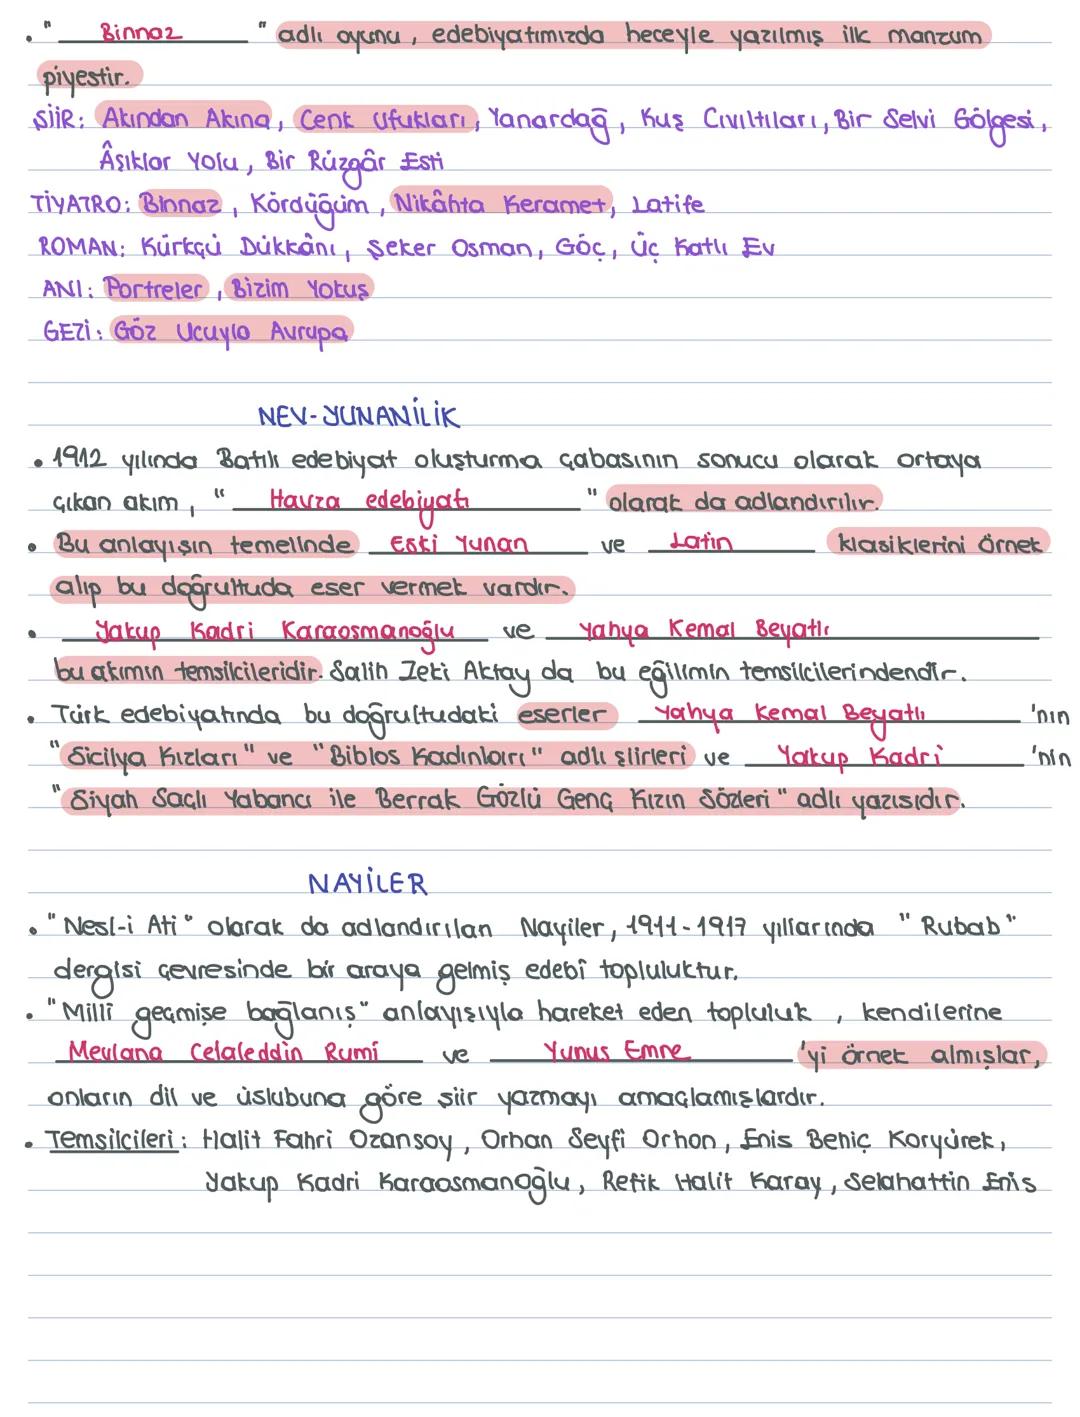 • " Binnaz " adlı oyunu, edebiyatımızda heceyle yazılmış ilk manzum
piyestir.
ŞİİR: Akından Akına, Cenk Ufukları, Yanardağ, Kuş Cıvıltıları, Bir Selvi Gölgesi,
Âşıklar Yolu, Bir Rüzgâr Esti
TİYATRO: Binnaz, Kördüğüm, Nikâhta Keramet, Latife
ROMAN: Kürkçü Dükkânı, Şeker Osman, Göç, Üç Katlı Ev
ANI: Portreler, Bizim Yokuş
GEZİ: Göz Ucuyla Avrupa
NEV-YUNANİLİK
• 1912 yılında Batılı edebiyat oluşturma çabasının sonucu olarak ortaya
çıkan akım, " Havza edebiyatı " olarak da adlandırılır.
• Bu anlayışın temelinde Eski Yunan ve Latin klasiklerini örnek
alıp bu doğrultuda eser vermek vardır.
• Yakup Kadri Karaosmanoğlu ve Yahya Kemal Beyatlı
bu akımın temsilcileridir. Salih Zeki Aktay da bu eğilimin temsilcilerindendir.
• Türk edebiyatında bu doğrultudaki eserler Yahya Kemal Beyatlı 'nın
"Sicilya Kızları" ve "Biblos Kadınları" adlı şiirleri ve Yakup Kadri 'nin
"Siyah Saçlı Yabancı ile Berrak Gözlü Genç Kızın Sözleri" adlı yazısıdır.
NAYİLER
• "Nesl-i Ati" olarak da adlandırılan Nayiler, 1911-1917 yıllarında "Rubab"
dergisi çevresinde bir araya gelmiş edebî topluluktur.
• "Millî geçmişe bağlanış" anlayışıyla hareket eden topluluk, kendilerine
Mevlana Celaleddin Rumî ve Yunus Emre 'yi örnek almışlar,
onların dil ve üslubuna göre şiir yazmayı amaçlamışlardır.
• Temsilcileri: Halit Fahri Ozansoy, Orhan Seyfi Orhon, Enis Behiç Koryürek,
Yakup Kadri Karaosmanoğlu, Refik Halit Karay, Selahattin Enis